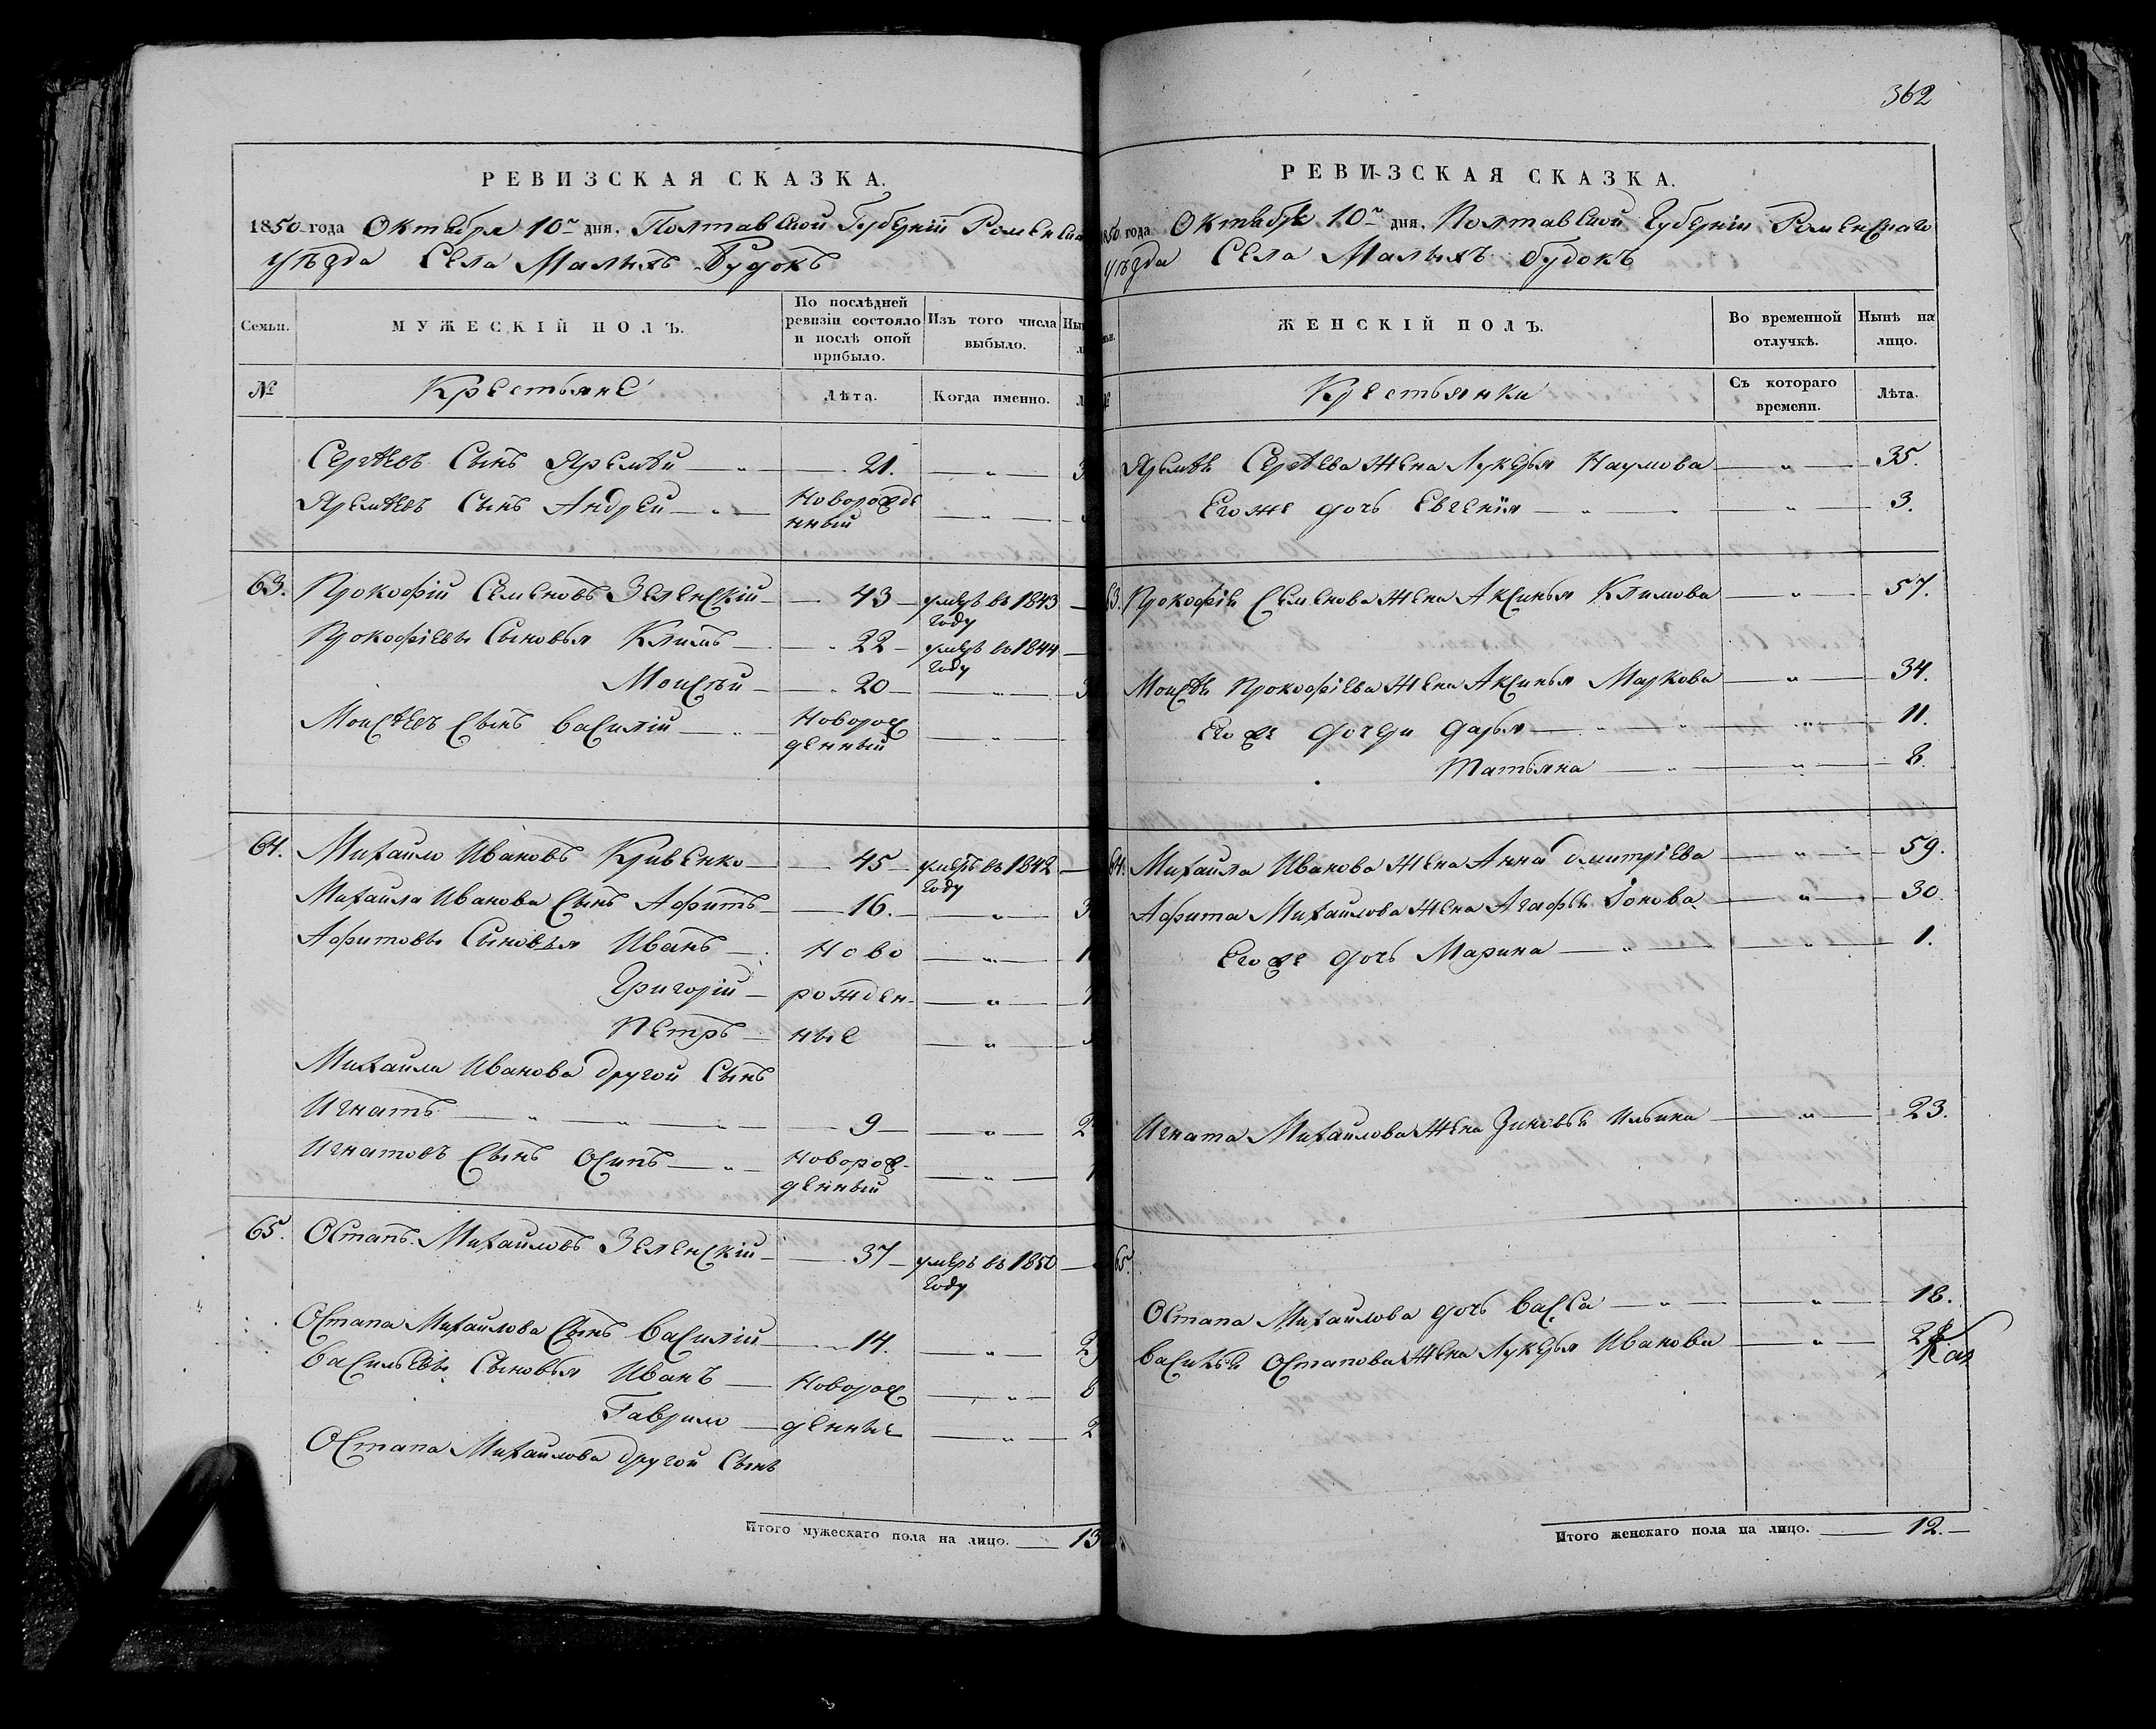 РЕВИЗСКАЯ СКАЗКА.
1850 года Октября 10го дня, Полтавской Губернiи Роменска
уѣзда Села Малыхъ Будокъ
Семьи.
МУЖЕСКIЙ ПОЛЪ.
По послѣдней
ревизiи состояло
и послѣ оной
прибыло.
Изъ того числа
выбыло.
№
Крестьяне
Лѣта.
Когда именно.
Сергѣевъ Сынъ Яремѣй — 21. — „ — 3
Яремѣевъ Сынъ Андрей — Новорожде
нный — „ —
63. Прокофiй Семеновъ Зеленскiй — 43 — умеръ въ 1843
году
Прокофiевы Сыновья Климъ — 22 — умеръ въ 1844
году
Моисѣй — 20 — „ — 3
Моисѣевъ Сынъ Василiй — Новорож
денный — „ —
64. Михайло Ивановъ Кривенко — 45 — умеръ въ 1842
году
Михайла Иванова Сынъ Афитъ — 16. — „ — 3
Афитовы Сыновья Иванъ — Ново — „ — 1
Григорiй — рожден- — „ — 1
Петръ — ные — „ —
Михайла Иванова другой Сынъ
Игнатъ — „ — 9 — „ — 2
Игнатовъ Сынъ Осипъ — Новорож-
денный — „ — 1
65. Остапъ Михайловъ Зеленскiй — 37 — умеръ въ 1850
году
Остапа Михайлова Сынъ Василiй — 14. — „ — 2
Васильевы Сыновья Иванъ — Новорож — „ — 8
Гаврило — денные — „ — 2
Остапа Михайлова другой Сынъ
Итого мужескаго пола на лицо. — 13
362
РЕВИЗСКАЯ СКАЗКА.
1850 года Октября 10го дня, Полтавской Губернiи Роменскаго
уѣзда Села Малыхъ Будокъ
ЖЕНСКIЙ ПОЛЪ.
Во временной
отлучкѣ.
Нынѣ на
лицо.
Крестьянки
Съ котораго
времени.
Лѣта.
Яремѣя Сергѣева жена Лукерья Наумова — „ — 35.
Его же дочь Евгенiя — „ — 3.
63. Прокофiя Семенова жена Аксинья Климова — „ — 57.
Моисѣя Прокофiева жена Аксинья Маркова — „ — 34.
Его же дочери Дарья — „ — 11.
Татьяна — „ — 8.
64. Михайла Иванова жена Анна Дмитрiева — „ — 59.
Афита Михайлова жена Агафья Iонова — „ — 30.
Его же дочь Марина — „ — 1.
Игната Михайлова жена Зиновья Ильина — „ — 23.
65.
Остапа Михайлова дочь Васса — „ — 18.
Василья Остапова жена Лукерья Иванова — „ —
Итого женскаго пола на лицо. — 12. —